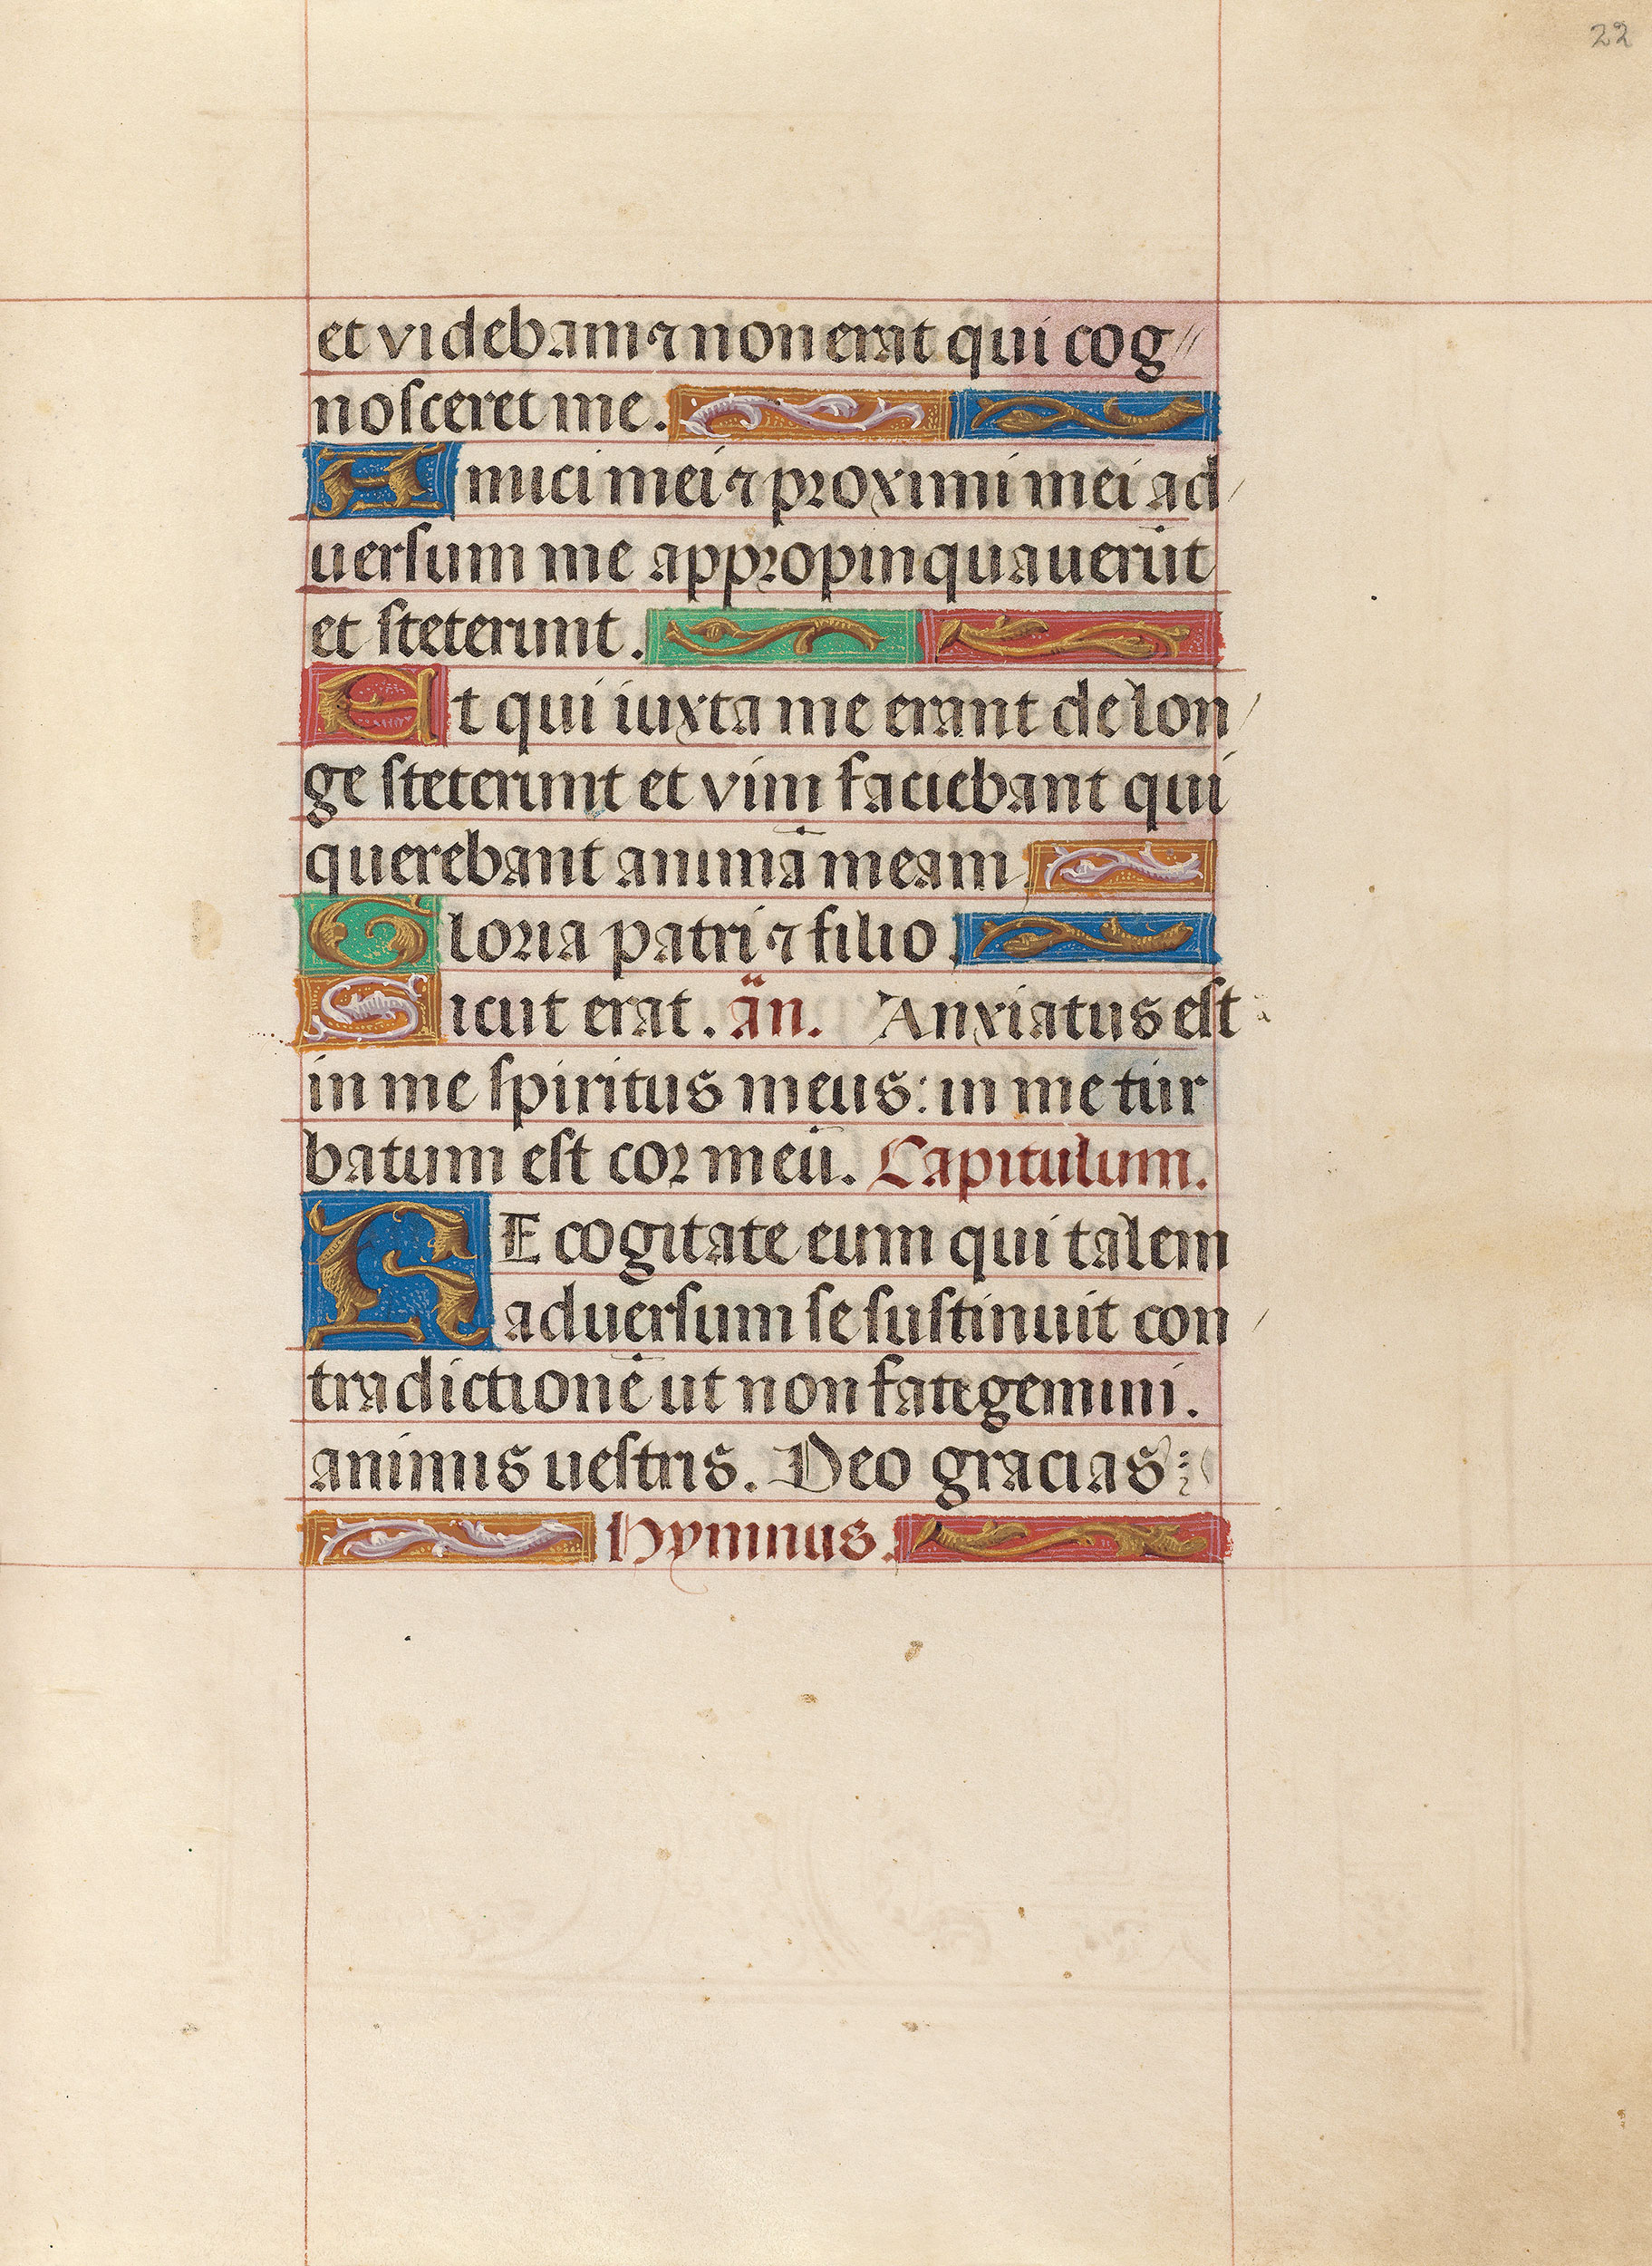 22
et videbam ⁊ non erat qui cog//
nosceret me.
Amici mei ⁊ proximi mei ad/
uersum me appropinquauerūt
et steterunt.
Et qui iuxta me erant de lon/
ge steterunt et vim faciebant qui
querebant animā meam.
Gloria patri ⁊ filio.
Sicut erat. än. Anxiatus est
in me spiritus meus: in me tur
batum est cor meū. Capitulum.
RE cogitate eum qui talem
aduersum se sustinuit con/
tradictionē ut non fategemini.
animis uestris. Deo gracias:
hymnus.